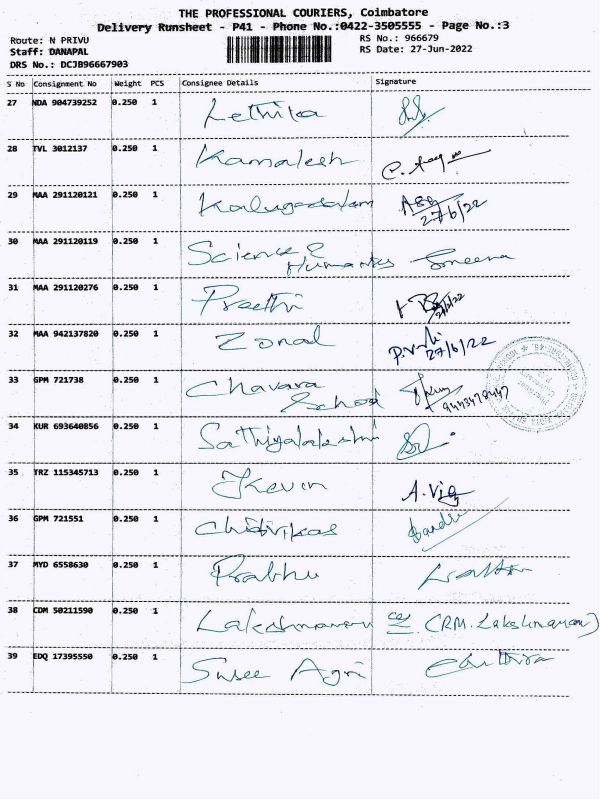 THE PROFESSIONAL COURIERS, Coimbatore
Delivery Runsheet - P41 - Phone No.:0422-3505555 - Page No.:3
Route: N PRIVU RS No.: 966679
Staff: DANAPAL RS Date: 27-Jun-2022
DRS No.: DCJB96667903
S No Consignment No Weight PCS Consignee Details Signature
27 NDA 904739252 0.250 1 Lethika
28 TVL 3012137 0.250 1 Kamalesh
29 MAA 291120121 0.250 1 27/6/22
30 MAA 291120119 0.250 1 Science & Humanities
31 MAA 291120276 0.250 1 Preethi
32 MAA 942137820 0.250 1 Zonal 27/6/22
33 GPM 721738 0.250 1 Chavara School
34 KUR 693640856 0.250 1
35 TRZ 115345713 0.250 1 Kevin
36 GPM 721551 0.250 1
37 MYD 6558630 0.250 1 Prabhu
38 CDM 50211590 0.250 1
39 EDQ 17395550 0.250 1 Sree Agri